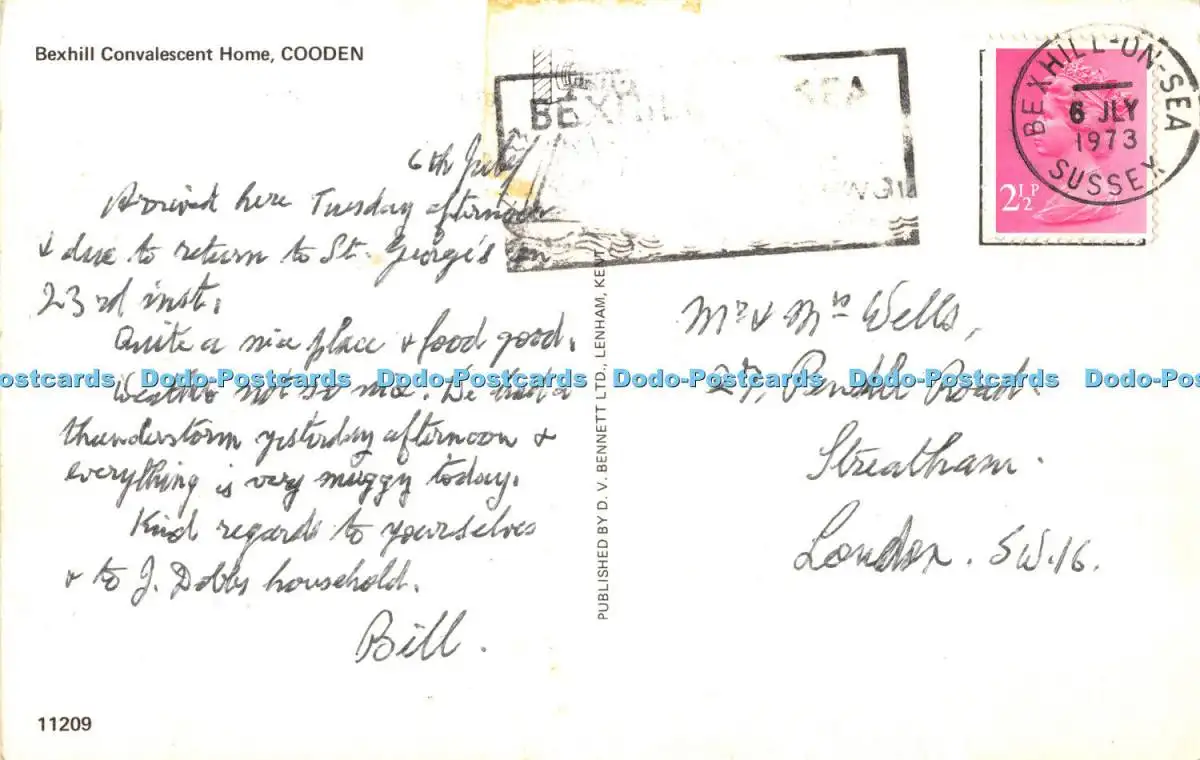 Bexhill Convalescent Home, COODEN
6th July
Arrived here Tuesday afternoon
& due to return to St. George's on
23rd inst.
Quite a nice place & food good.
Weather not so nice. We had a
thunderstorm yesterday afternoon &
everything is very muggy today.
Kind regards to yourselves
& to J. Dobbs household.
Bill.
11209
PUBLISHED BY D. V. BENNETT LTD., LENHAM, KENT
BEXHILL SEA
BEXHILL-ON-SEA
6 JLY
1973
SUSSEX
2½P
Mr & Mrs Wells,
27, Road.
Streatham.
London. SW.16.
Dodo-Postcards Dodo-Postcards Dodo-Postcards Dodo-Postcards Dodo-Postcards Dodo-Postcards